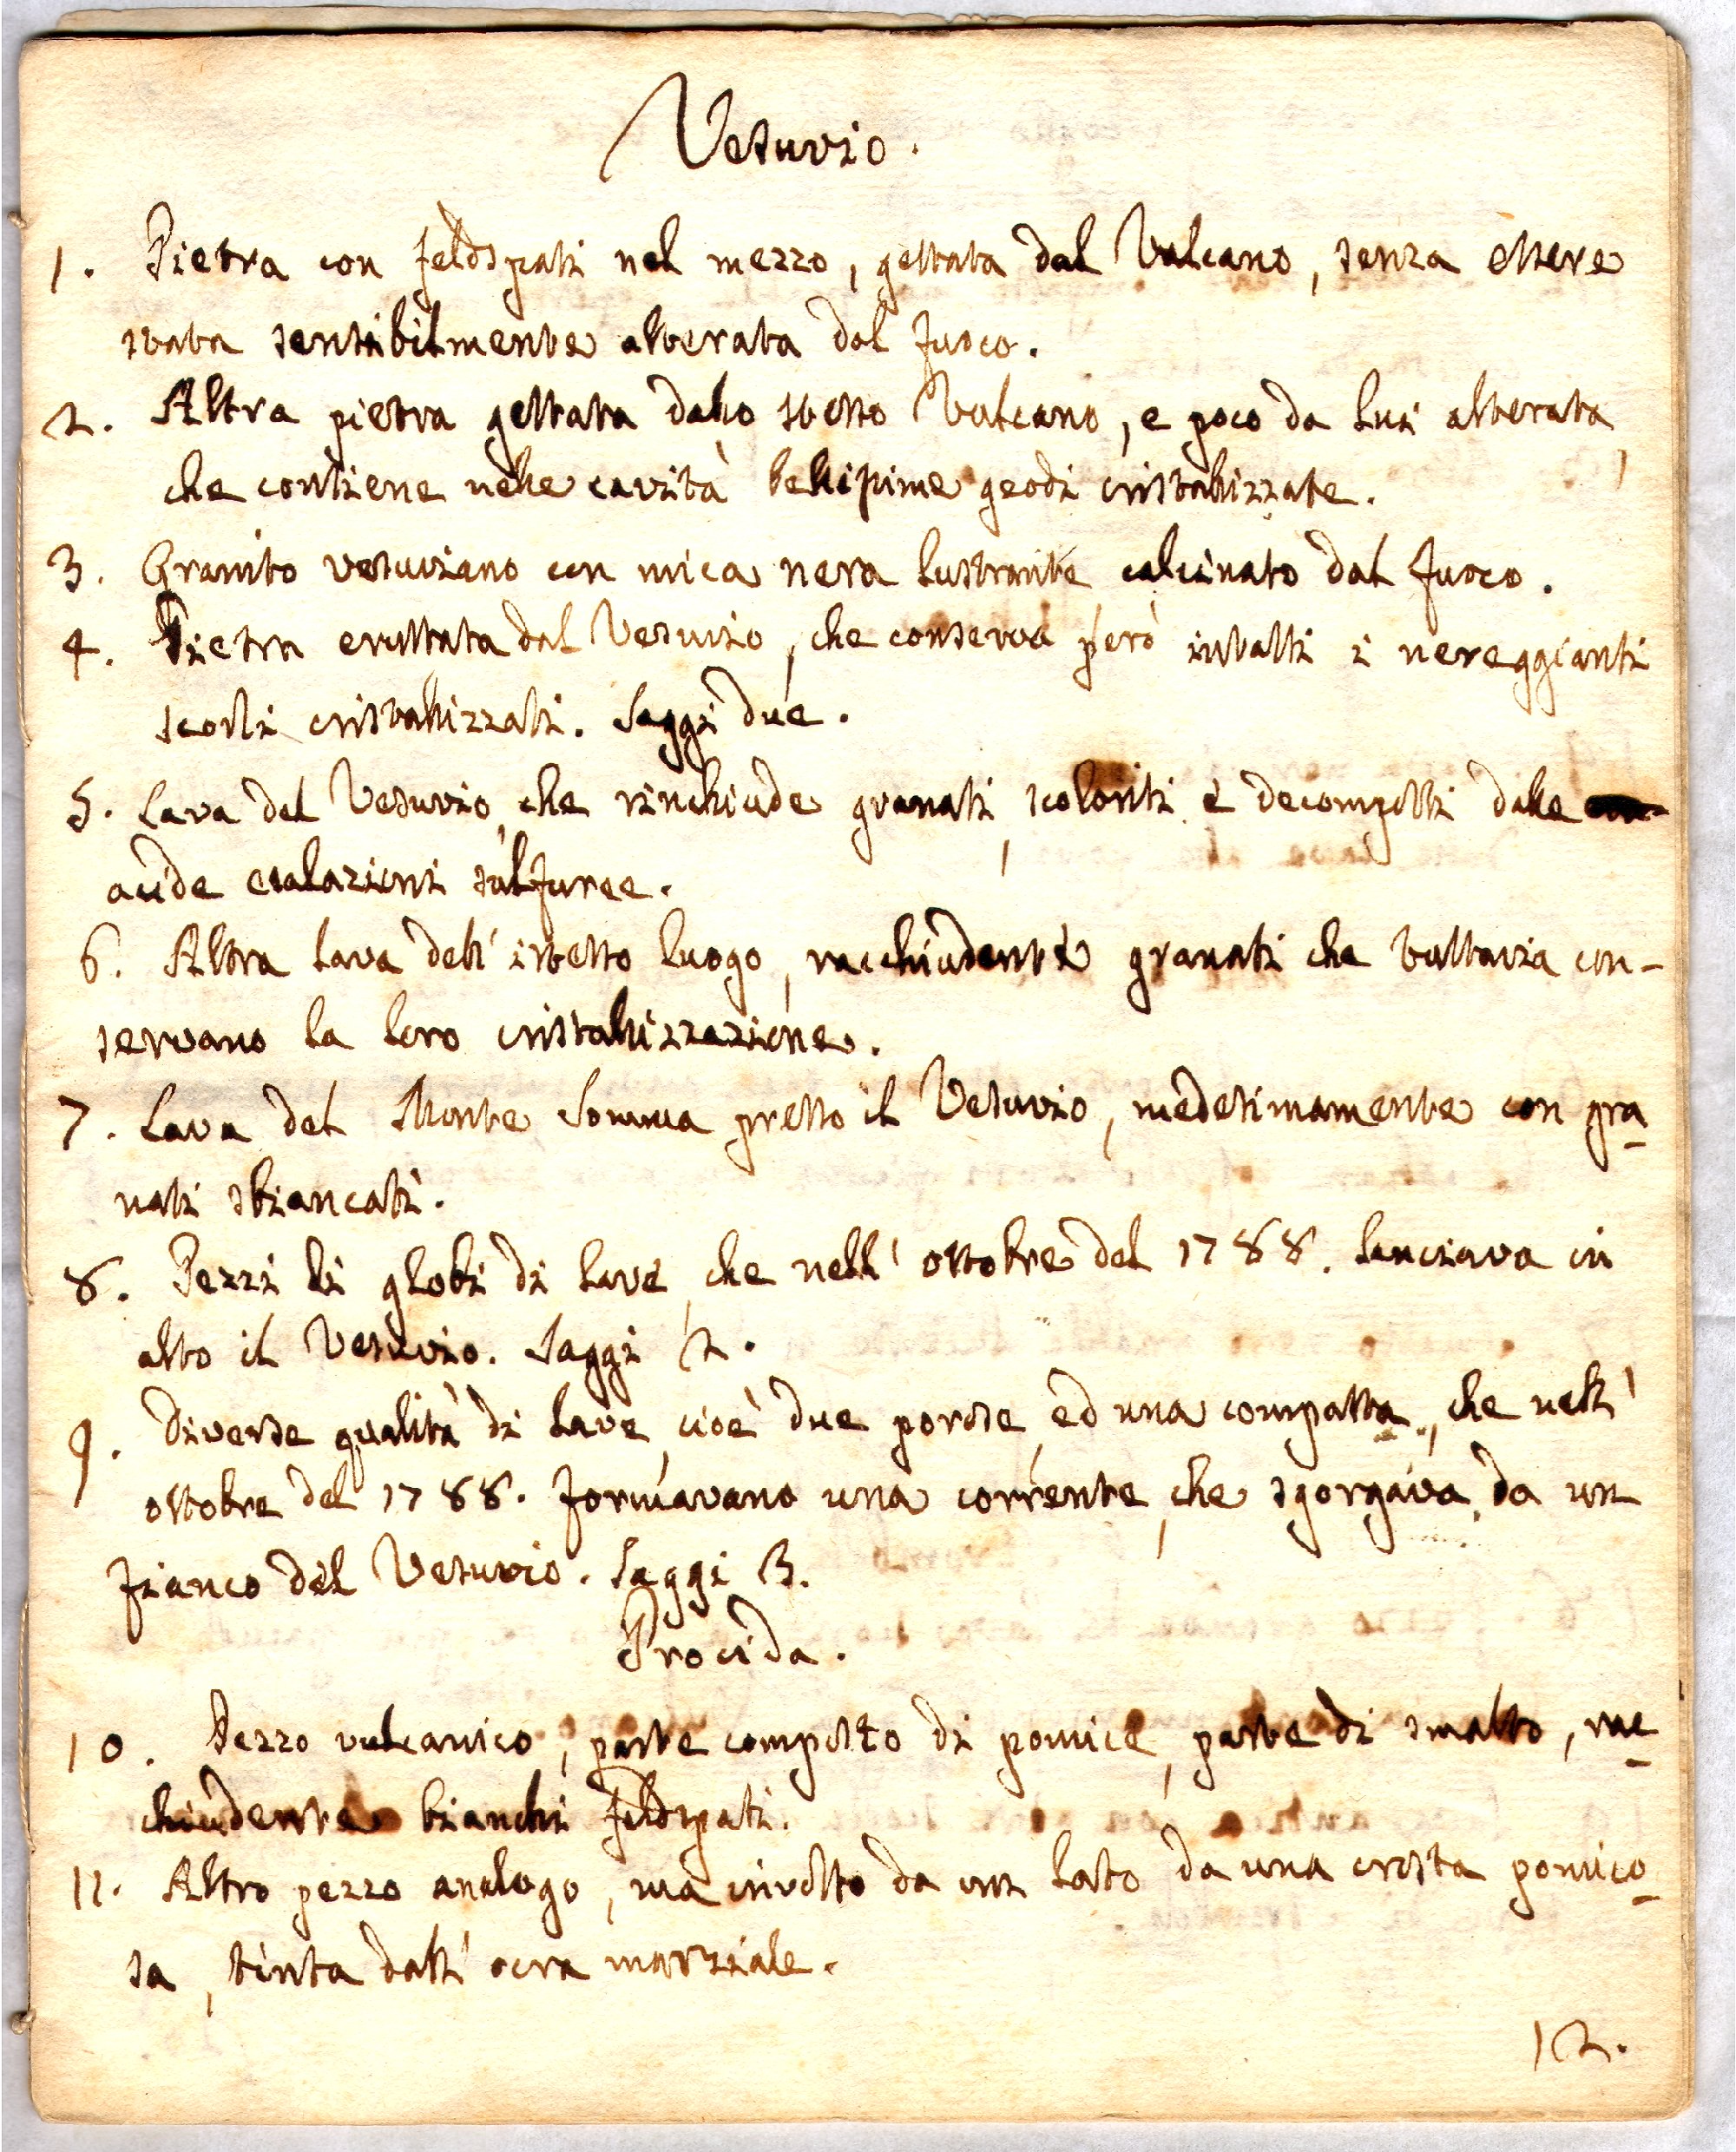 Vesuvio.
1. Pietra con feldspati nel mezzo, gettata dal Vulcano, senza essere
stata sensibilmente alterata dal fuoco.
2. Altra pietra gettata dallo stesso Vulcano, e poco da lui alterata,
che contiene nelle cavità bellissime geodi cristallizzate.
3. Granito vesuviano con mica nera lustrante calcinato dal fuoco.
4. Pietra eruttata dal Vesuvio, che conserva però intatti i nereggianti
scorli cristallizzati. Saggi due.
5. Lava del Vesuvio, che rinchiude granati, scoloriti e decomposti dalle
acide esalazioni sulfuree.
6. Altra lava dell'istesso luogo, racchiudente granati che tuttavia con-
servano la loro cristallizzazione.
7. Lava del Monte Somma presso il Vesuvio, medesimamente con gra-
nati sbiancati.
8. Pezzi di globi di lave, che nell'ottobre del 1788. lanciava in
alto il Vesuvio. Saggi 2.
9. Diverse qualità di lave, cioè due porose, ed una compatta, che nell'
ottobre del 1788. formavano una corrente, che sgorgava da un
fianco del Vesuvio. Saggi 3.
Procida.
10. Pezzo vulcanico, parte composto di pomice, parte di smalto, rac-
chiudente bianchi feldspati.
11. Altro pezzo analogo, ma involto da un lato da una crosta pomico-
sa, tinta dall'ocra marziale.
12.